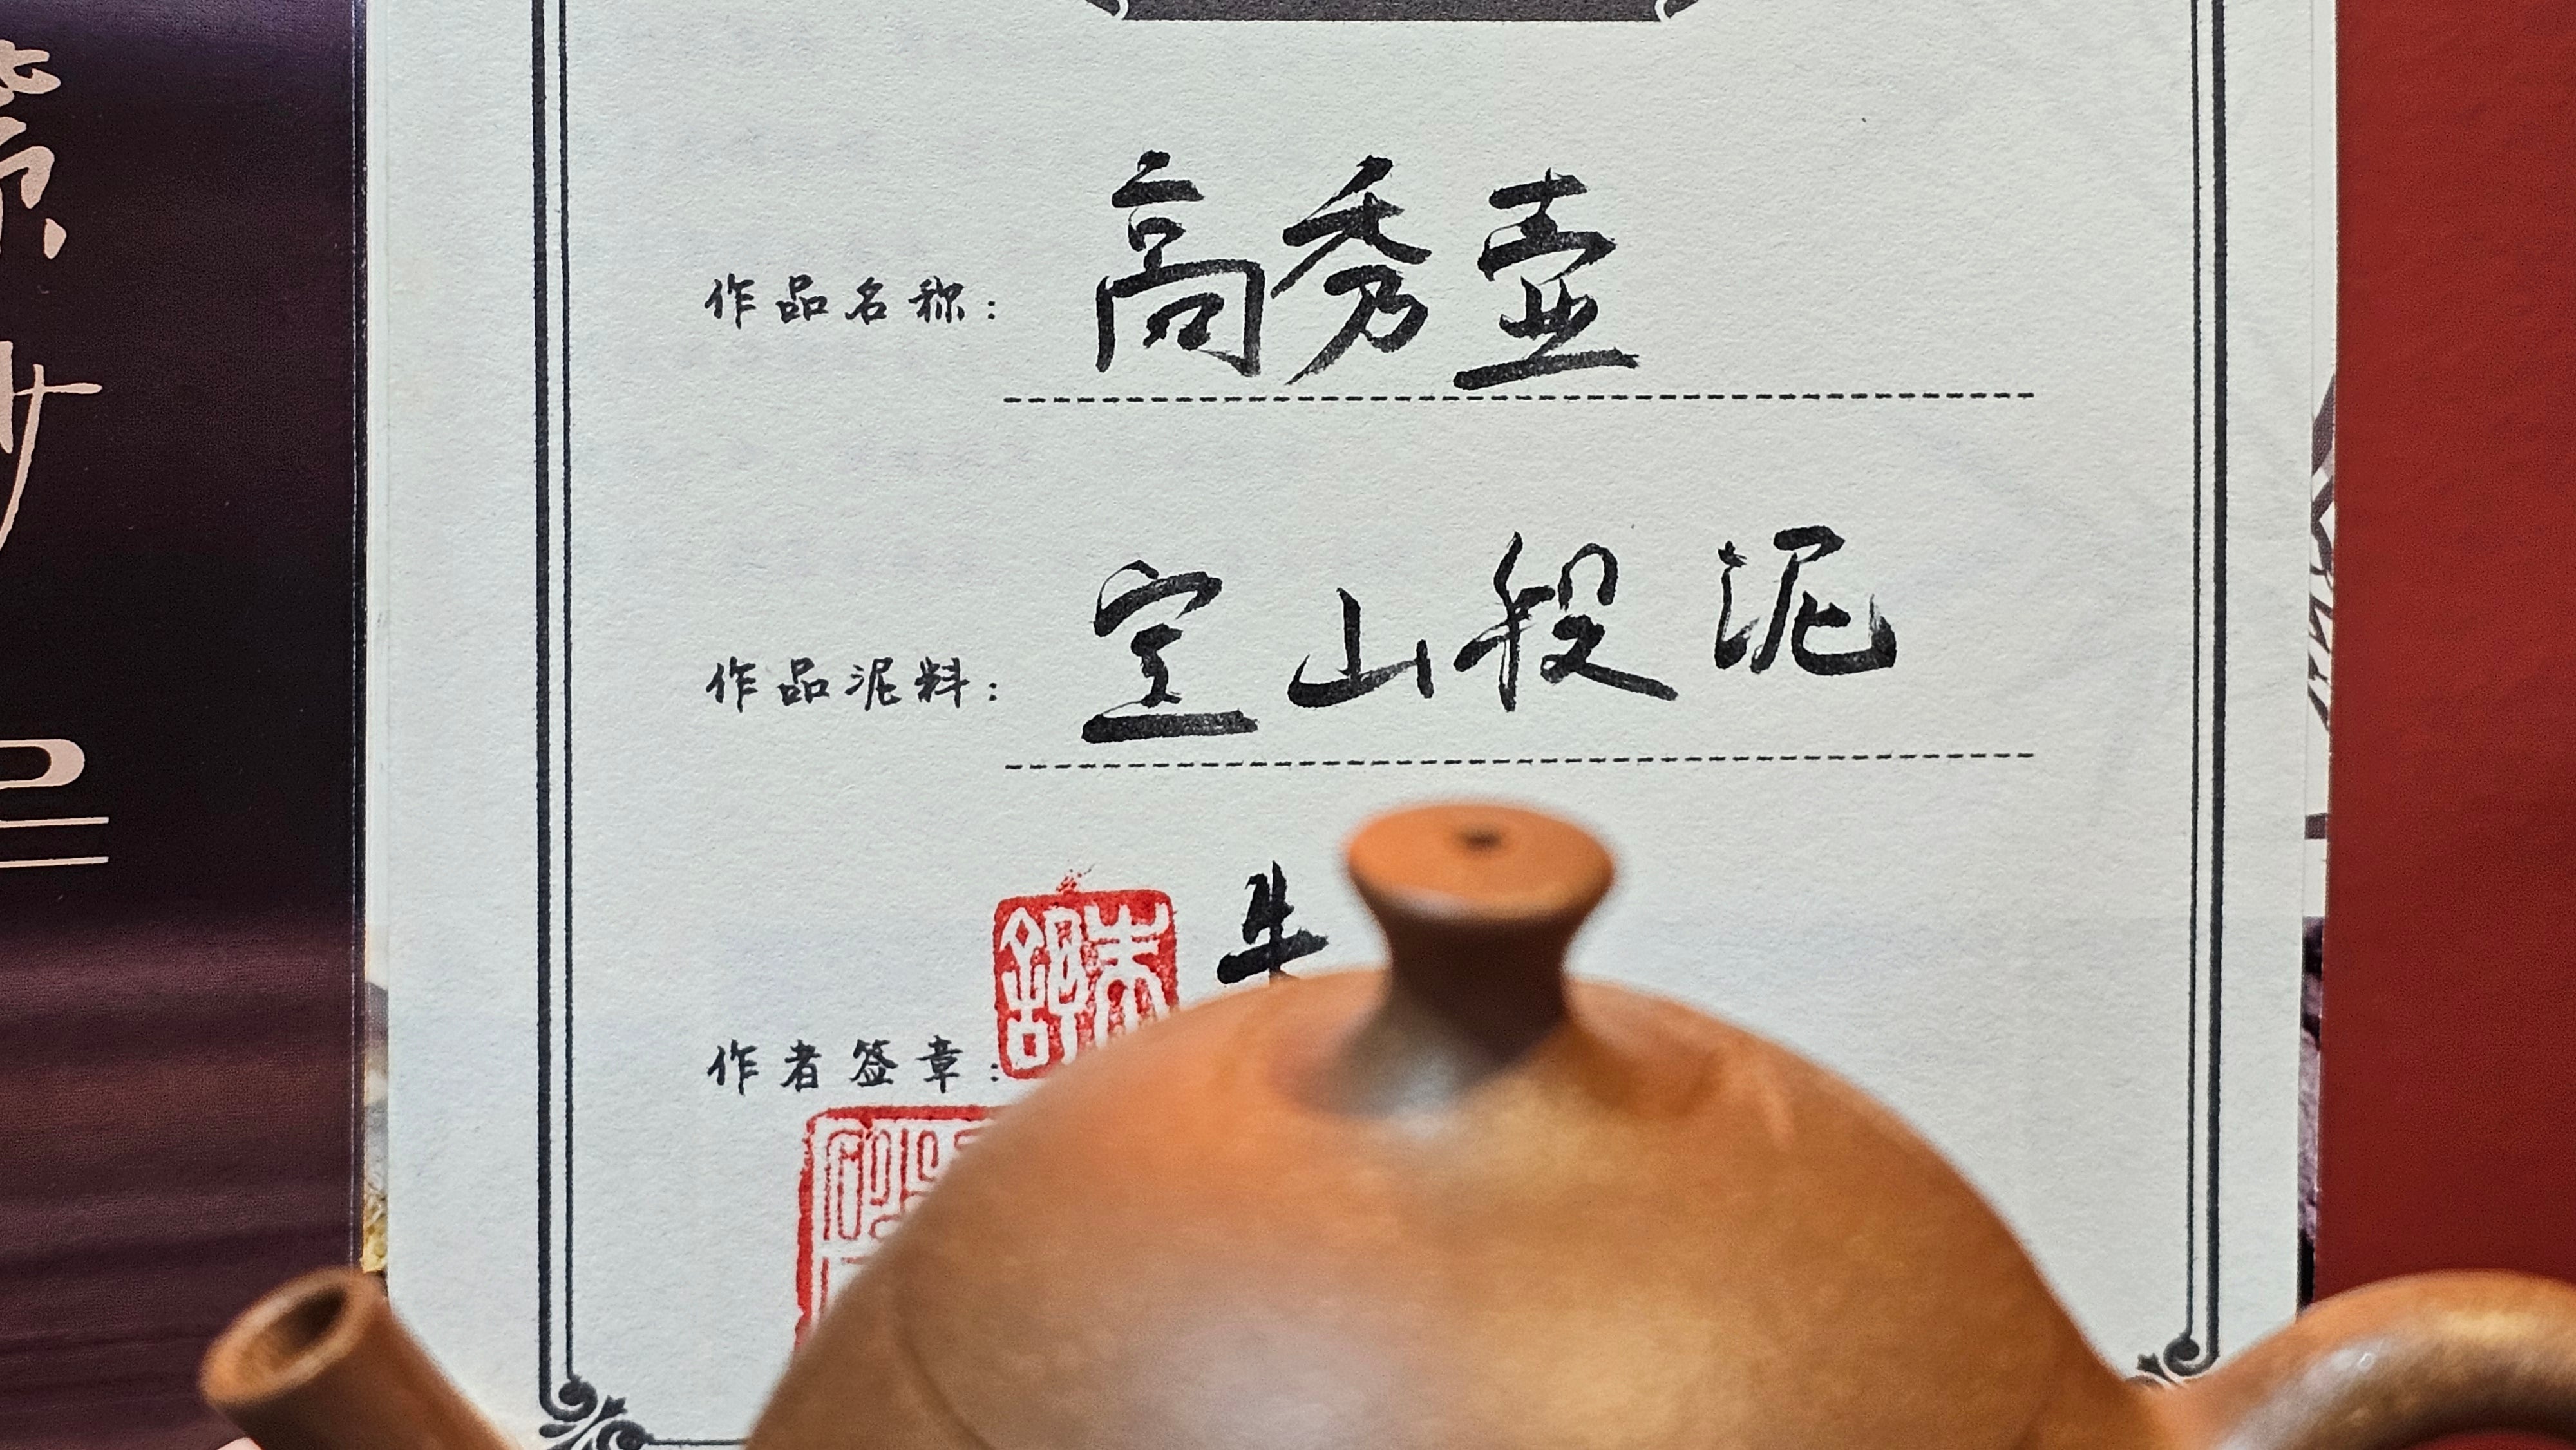 作品名称：高秀壶
作品泥料：宝山段泥
作者签章：